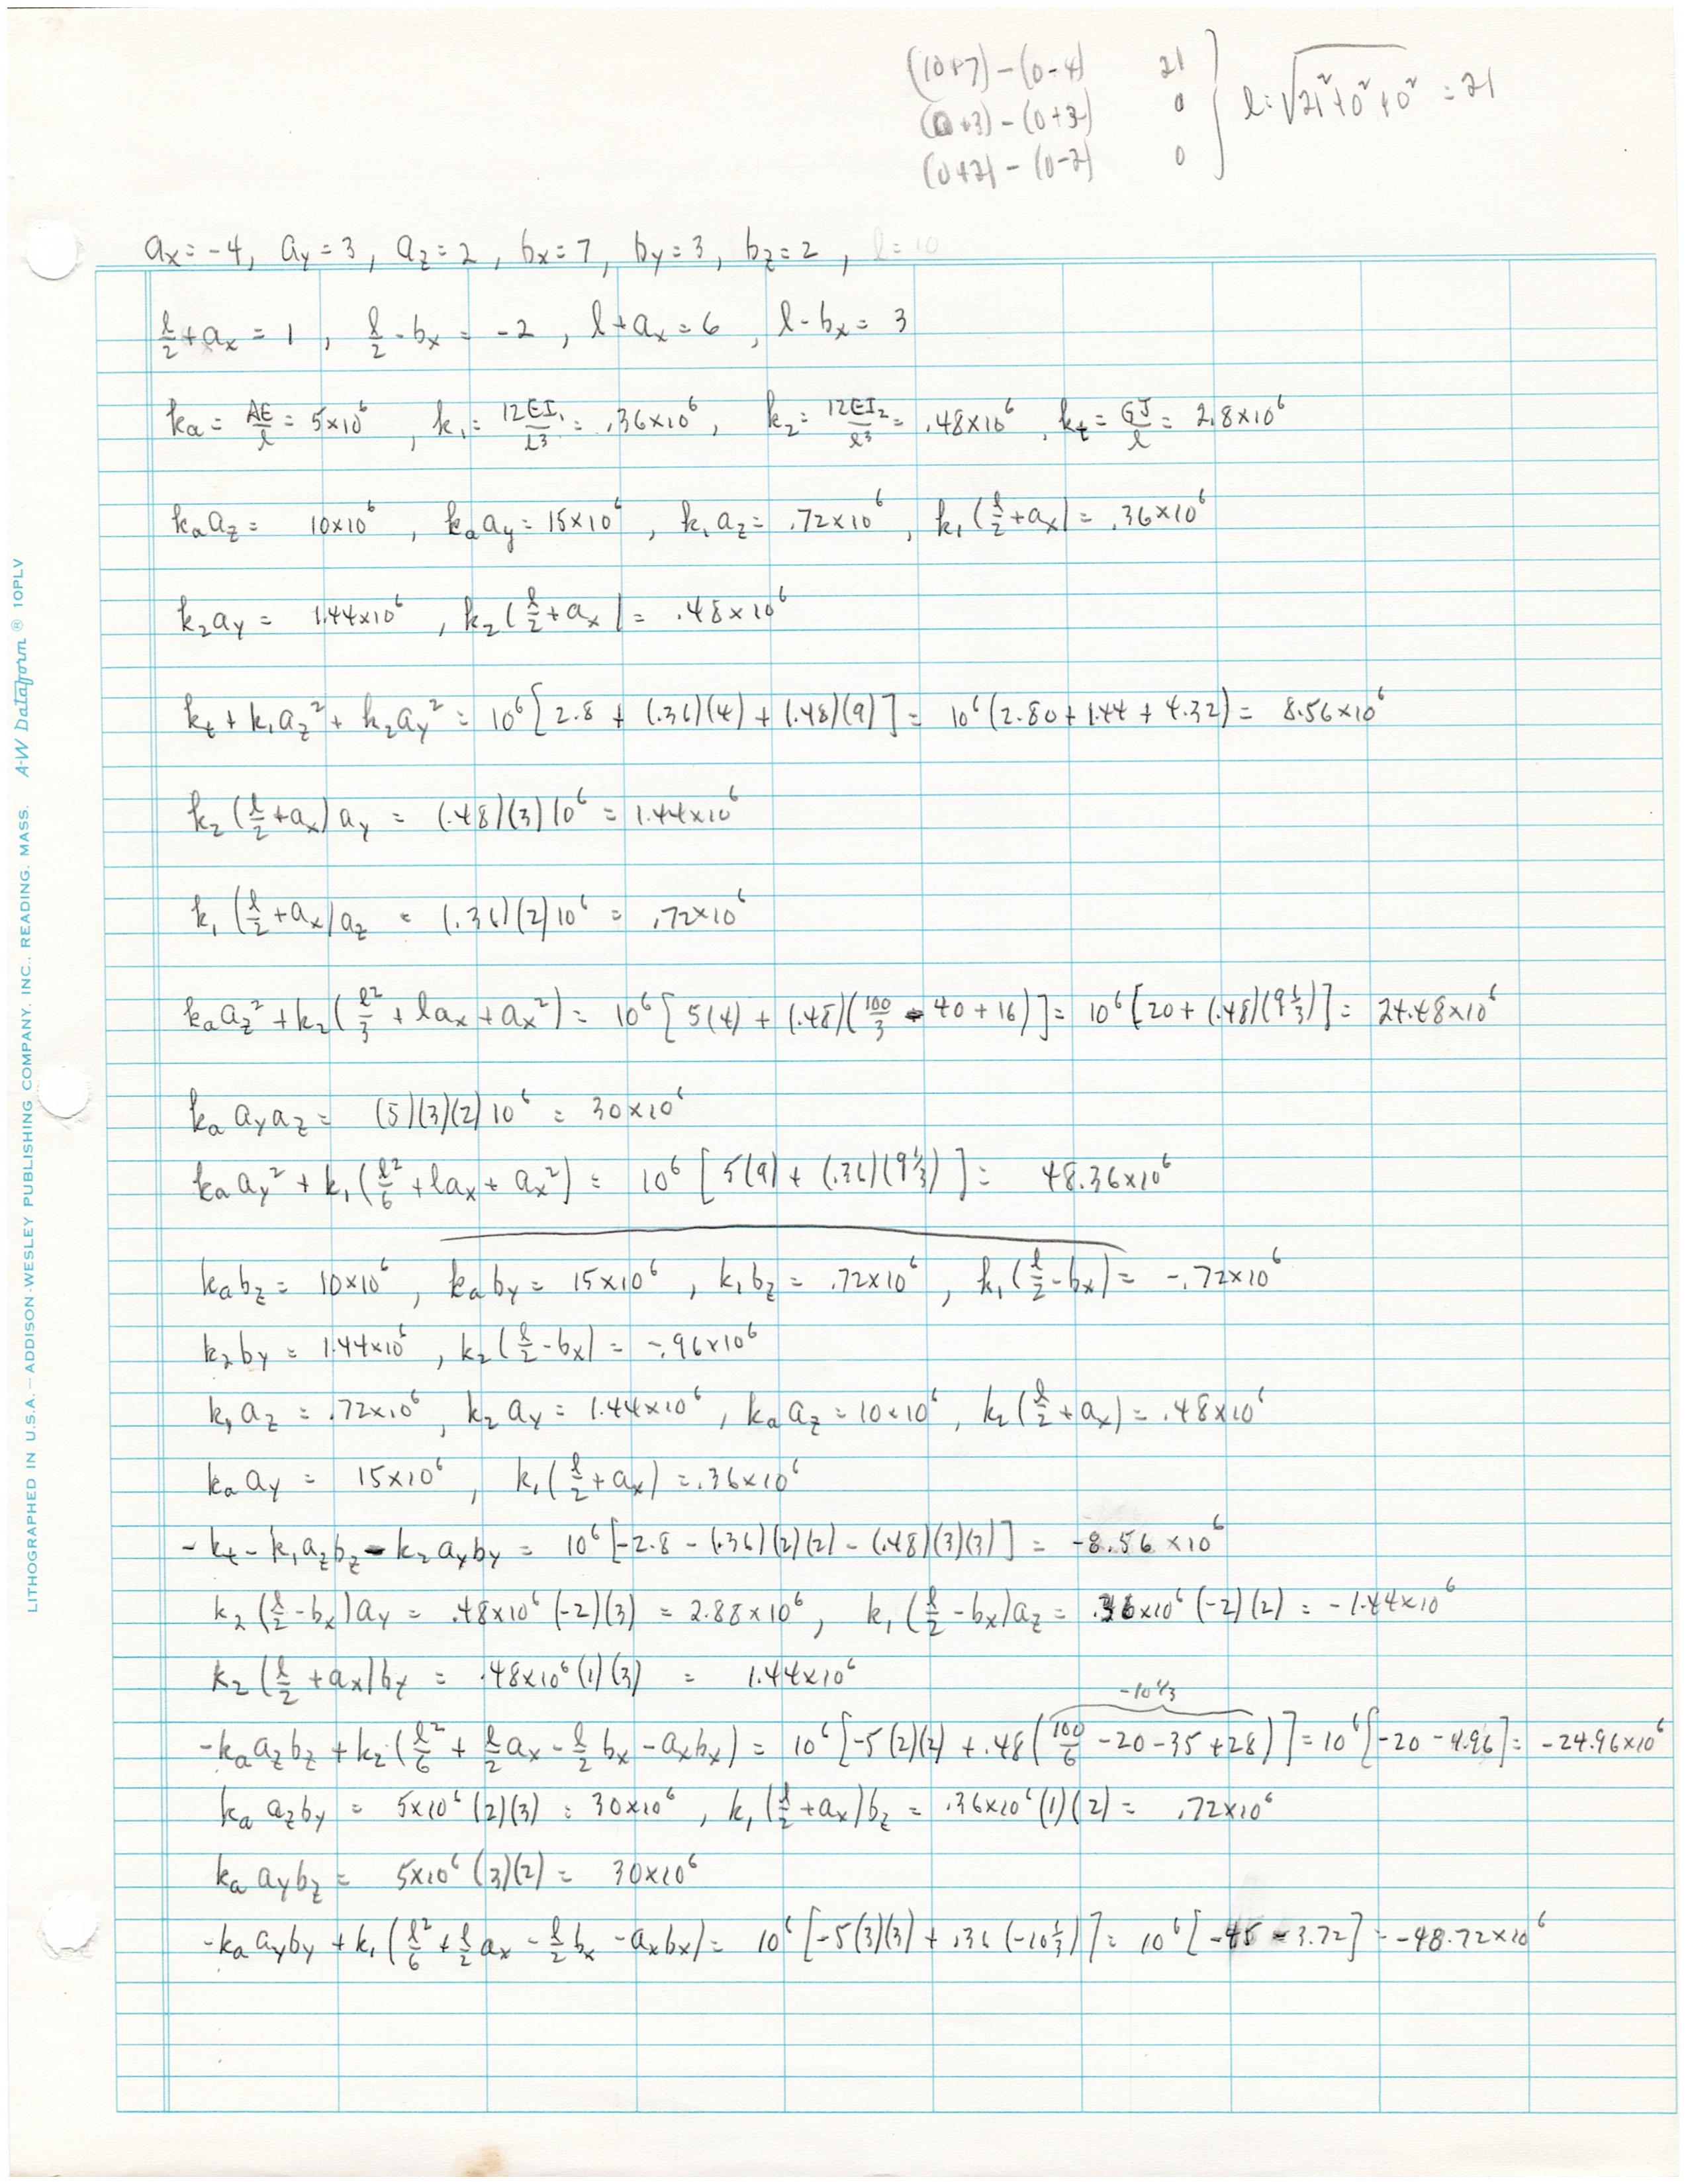 (10+7) - (0-4) 21
(0+3) - (0+3) 0
(0+2) - (0-2) 0
l = √(21² + 0² + 0²) = 21
aₓ = -4, a_y = 3, a_z = 2, bₓ = 7, b_y = 3, b_z = 2, l = 10
l/2 + aₓ = 1, l/2 - bₓ = -2, l + aₓ = 6, l - bₓ = 3
kₐ = AE/l = 5×10⁶, k₁ = 12EI₁/l³ = .36×10⁶, k₂ = 12EI₂/l³ = .48×10⁶, k_t = GJ/l = 2.8×10⁶
kₐa_z = 10×10⁶, kₐa_y = 15×10⁶, k₁a_z = .72×10⁶, k₁(l/2 + aₓ) = .36×10⁶
k₂a_y = 1.44×10⁶, k₂(l/2 + aₓ) = .48×10⁶
k_t + k₁a_z² + k₂a_y² = 10⁶[2.8 + (.36)(4) + (.48)(9)] = 10⁶(2.80 + 1.44 + 4.32) = 8.56×10⁶
k₂(l/2 + aₓ)a_y = (.48)(3)10⁶ = 1.44×10⁶
k₁(l/2 + aₓ)a_z = (.36)(2)10⁶ = .72×10⁶
kₐa_z² + k₂(l²/3 + laₓ + aₓ²) = 10⁶[5(4) + (.48)(100/3 - 40 + 16)] = 10⁶[20 + (.48)(9⅓)] = 24.48×10⁶
kₐa_ya_z = (5)(3)(2)10⁶ = 30×10⁶
kₐa_y² + k₁(l²/6 + laₓ + aₓ²) = 10⁶[5(9) + (.36)(9⅓)] = 48.36×10⁶
kₐb_z = 10×10⁶, kₐb_y = 15×10⁶, k₁b_z = .72×10⁶, k₁(l/2 - bₓ) = -.72×10⁶
k₂b_y = 1.44×10⁶, k₂(l/2 - bₓ) = -.96×10⁶
k₁a_z = .72×10⁶, k₂a_y = 1.44×10⁶, kₐa_z = 10×10⁶, k₂(l/2 + aₓ) = .48×10⁶
kₐa_y = 15×10⁶, k₁(l/2 + aₓ) = .36×10⁶
-k_t - k₁a_zb_z - k₂a_yb_y = 10⁶[-2.8 - (.36)(2)(2) - (.48)(3)(3)] = -8.56×10⁶
k₂(l/2 - bₓ)a_y = .48×10⁶(-2)(3) = 2.88×10⁶, k₁(l/2 - bₓ)a_z = .36×10⁶(-2)(2) = -1.44×10⁶
k₂(l/2 + aₓ)b_y = .48×10⁶(1)(3) = 1.44×10⁶
-10⅓
-kₐa_zb_z + k₂(l²/6 + l/2 aₓ - l/2 bₓ - aₓbₓ) = 10⁶[-5(2)(2) + .48(100/6 - 20 - 35 + 28)] = 10⁶[-20 - 4.96] = -24.96×10⁶
kₐa_zb_y = 5×10⁶(2)(3) = 30×10⁶, k₁(l/2 + aₓ)b_z = .36×10⁶(1)(2) = .72×10⁶
kₐa_yb_z = 5×10⁶(3)(2) = 30×10⁶
-kₐa_yb_y + k₁(l²/6 + l/2 aₓ - l/2 bₓ - aₓbₓ) = 10⁶[-5(3)(3) + .36(-10⅓)] = 10⁶[-45 - 3.72] = -48.72×10⁶
LITHOGRAPHED IN U.S.A. — ADDISON-WESLEY PUBLISHING COMPANY, INC., READING, MASS. A-W Dataform ® 10PLV